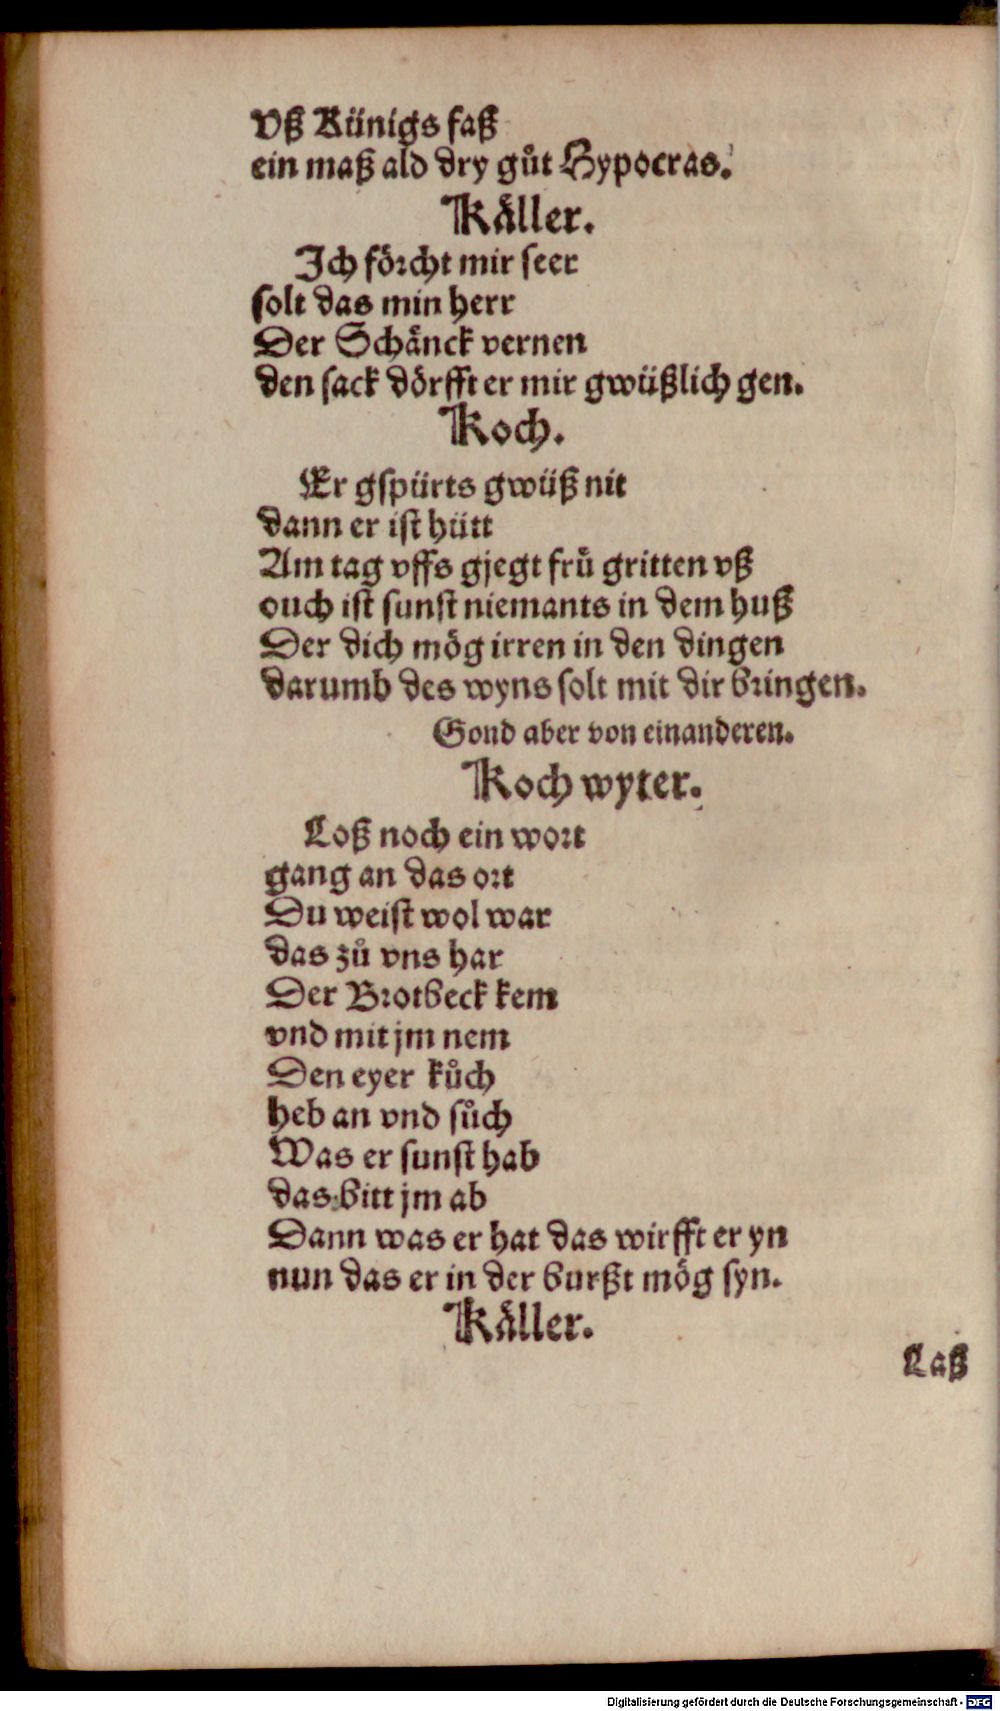 Vß Künigs faß
ein maß ald dry gůt Hypocras.
Käller.
Ich förcht mir seer
solt das min herr
Der Schänck vernen
den sack dörfft er mir gwüßlich gen.
Koch.
Er gspürts gwüß nit
dann er ist hütt
Am tag vffs gjegt frü gritten vß
ouch ist sunst niemants in dem huß
Der dich mög irren in den dingen
darumb des wyns solt mit dir bringen.
Gond aber von einanderen.
Koch wyter.
Loß noch ein wort
gang an das ort
Du weist wol war
das zů vns har
Der Brotbeck kem
vnd mit jm nem
Den eyer kůch
heb an vnd sůch
Was er sunst hab
das bitt jm ab
Dann was er hat das wirfft er yn
nun das er in der burßt mög syn.
Käller.
Laß
Digitalisierung gefördert durch die Deutsche Forschungsgemeinschaft - DFG